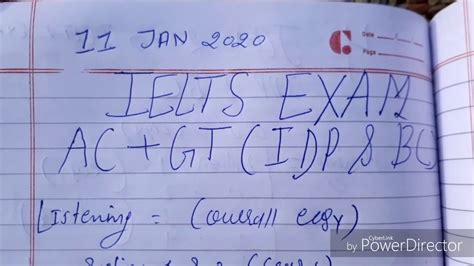 11 JAN 2020
Date
Page
IELTS EXAM
AC + GT (IDP & BC)
Listening = (overall easy)
CyberLink
by PowerDirector